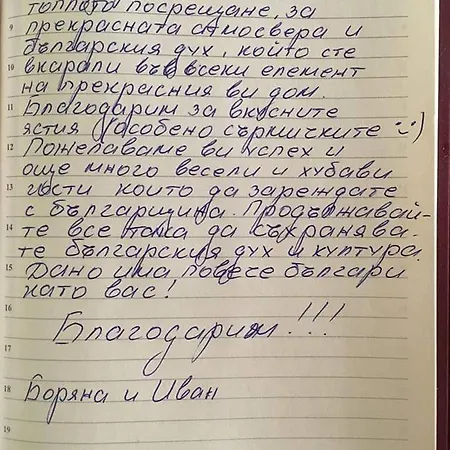 топлото посрещане, за
9 прекрасната атмосвера и
българския дух, който сте
10 вкарали във всеки елемент
на прекрасния ви дом.
11 Благодарим за вкусните
ястия (особено сърмичките :-))
12 Пожелаваме ви успех и
още много весели и хубави
13 гости които да зареждате
с българщина. Продължавай-
14 те все така да съхранява-
те българския дух и култура.
15 Дано има повече българи
като вас!
16
Благодарим!!!
17
18 Боряна и Иван
19